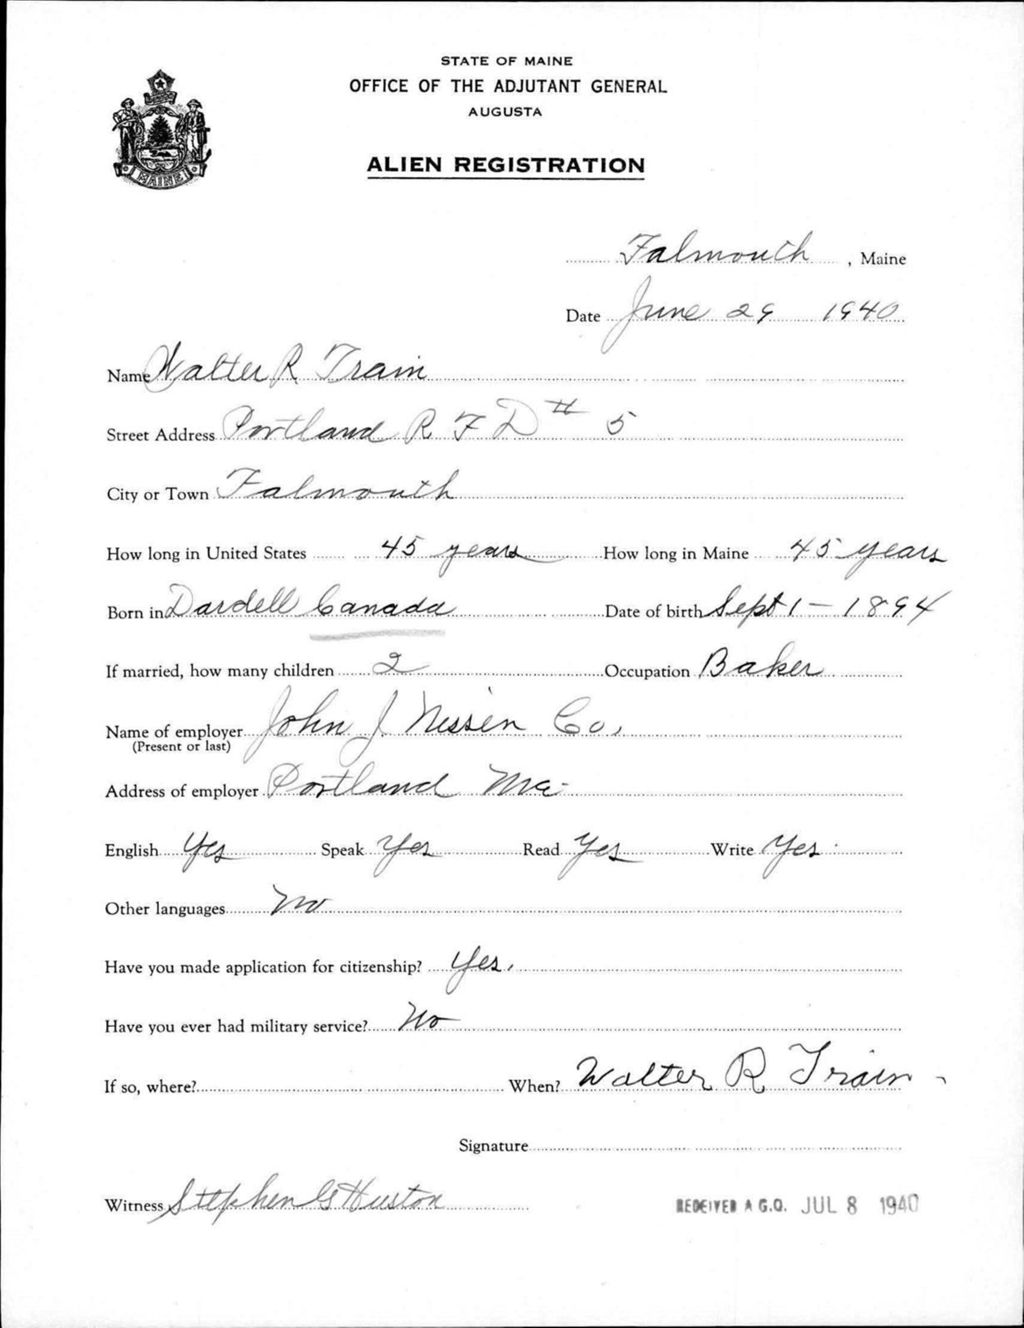 STATE OF MAINE
OFFICE OF THE ADJUTANT GENERAL
AUGUSTA
ALIEN REGISTRATION
MAINE
Falmouth, Maine
Date June 29 1940
Name Walter R Train
Street Address Portland R F D # 5
City or Town Falmouth
How long in United States 45 years How long in Maine 45 years
Born in Dardell Canada Date of birth Sept 1 - 1894
If married, how many children 2 Occupation Baker
Name of employer John J Nissen Co,
(Present or last)
Address of employer Portland Me-
English Yes Speak Yes Read Yes Write Yes
Other languages No
Have you made application for citizenship? Yes,
Have you ever had military service? No
If so, where? When? Walter R Train
Signature
Witness Stephen G Huston RECEIVED A.G.O. JUL 8 1940